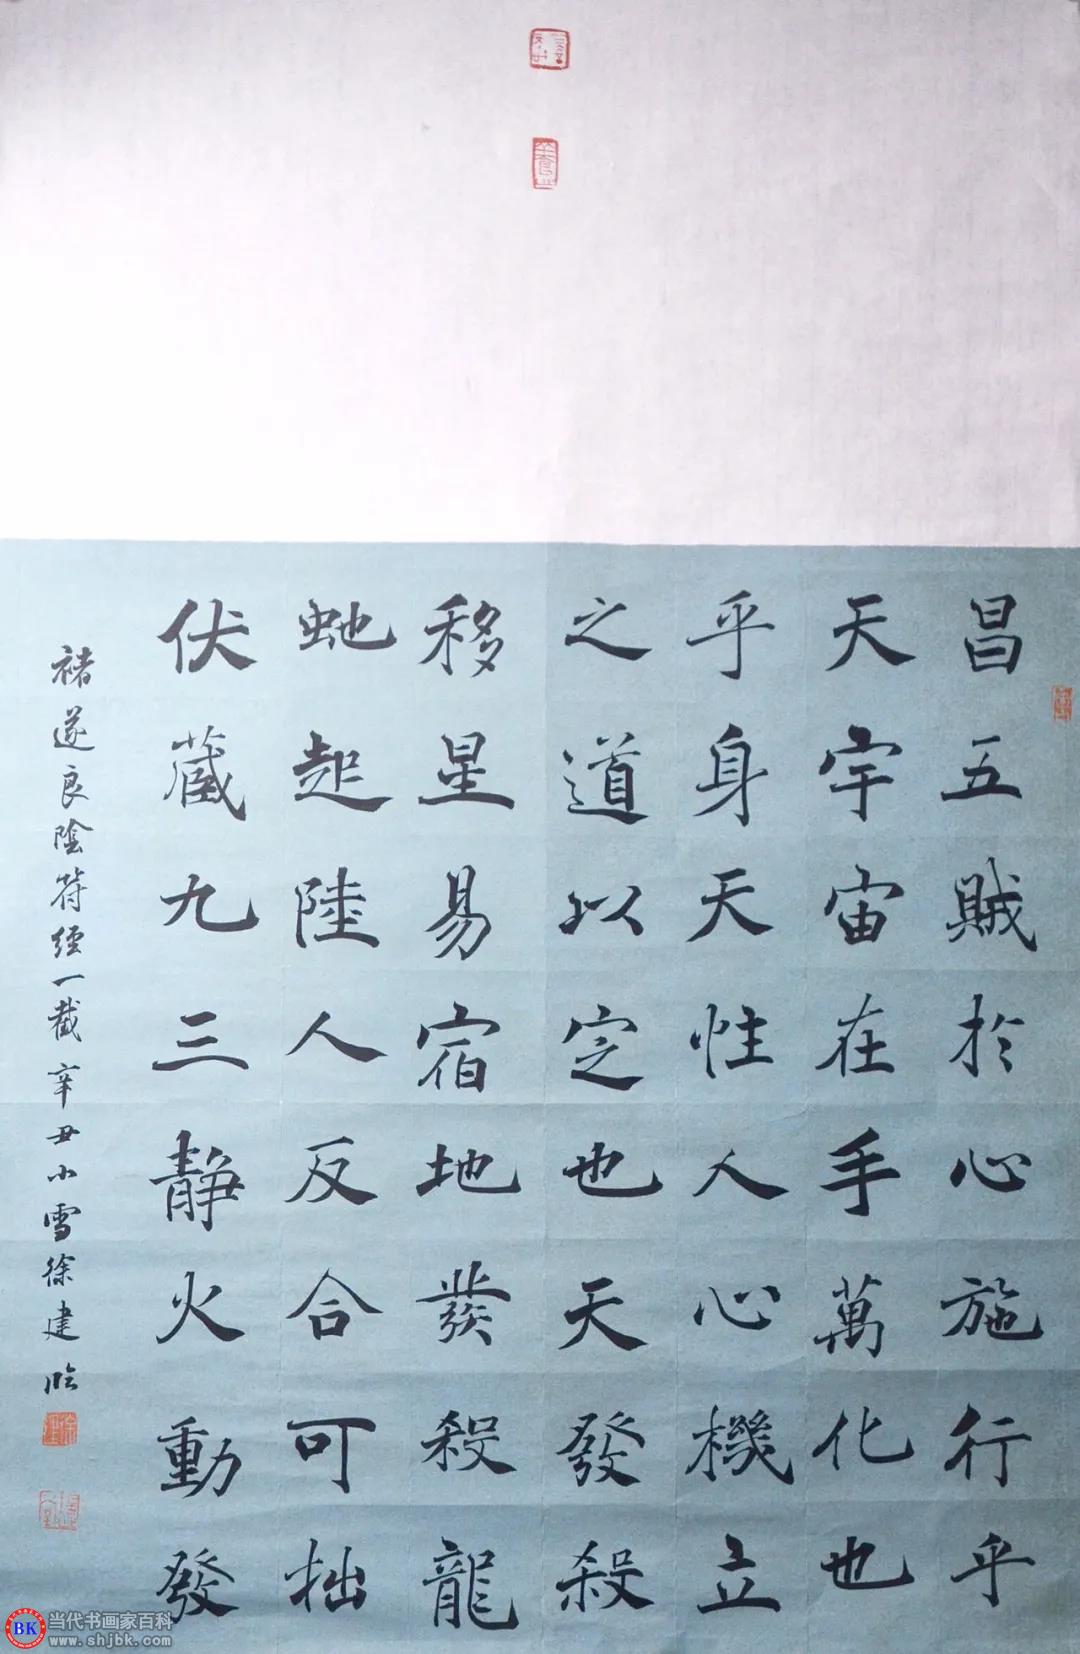 昌五賊於心施行乎
天宇宙在手萬化也
乎身天性人心機立
之道以定也天發殺
移星易宿地發殺龍
虵起陸人反合可拙
伏藏九三靜火動發
褚遂良陰符經一截辛丑小雪徐建臨
BK
当代书画家百科
www.shjbk.com